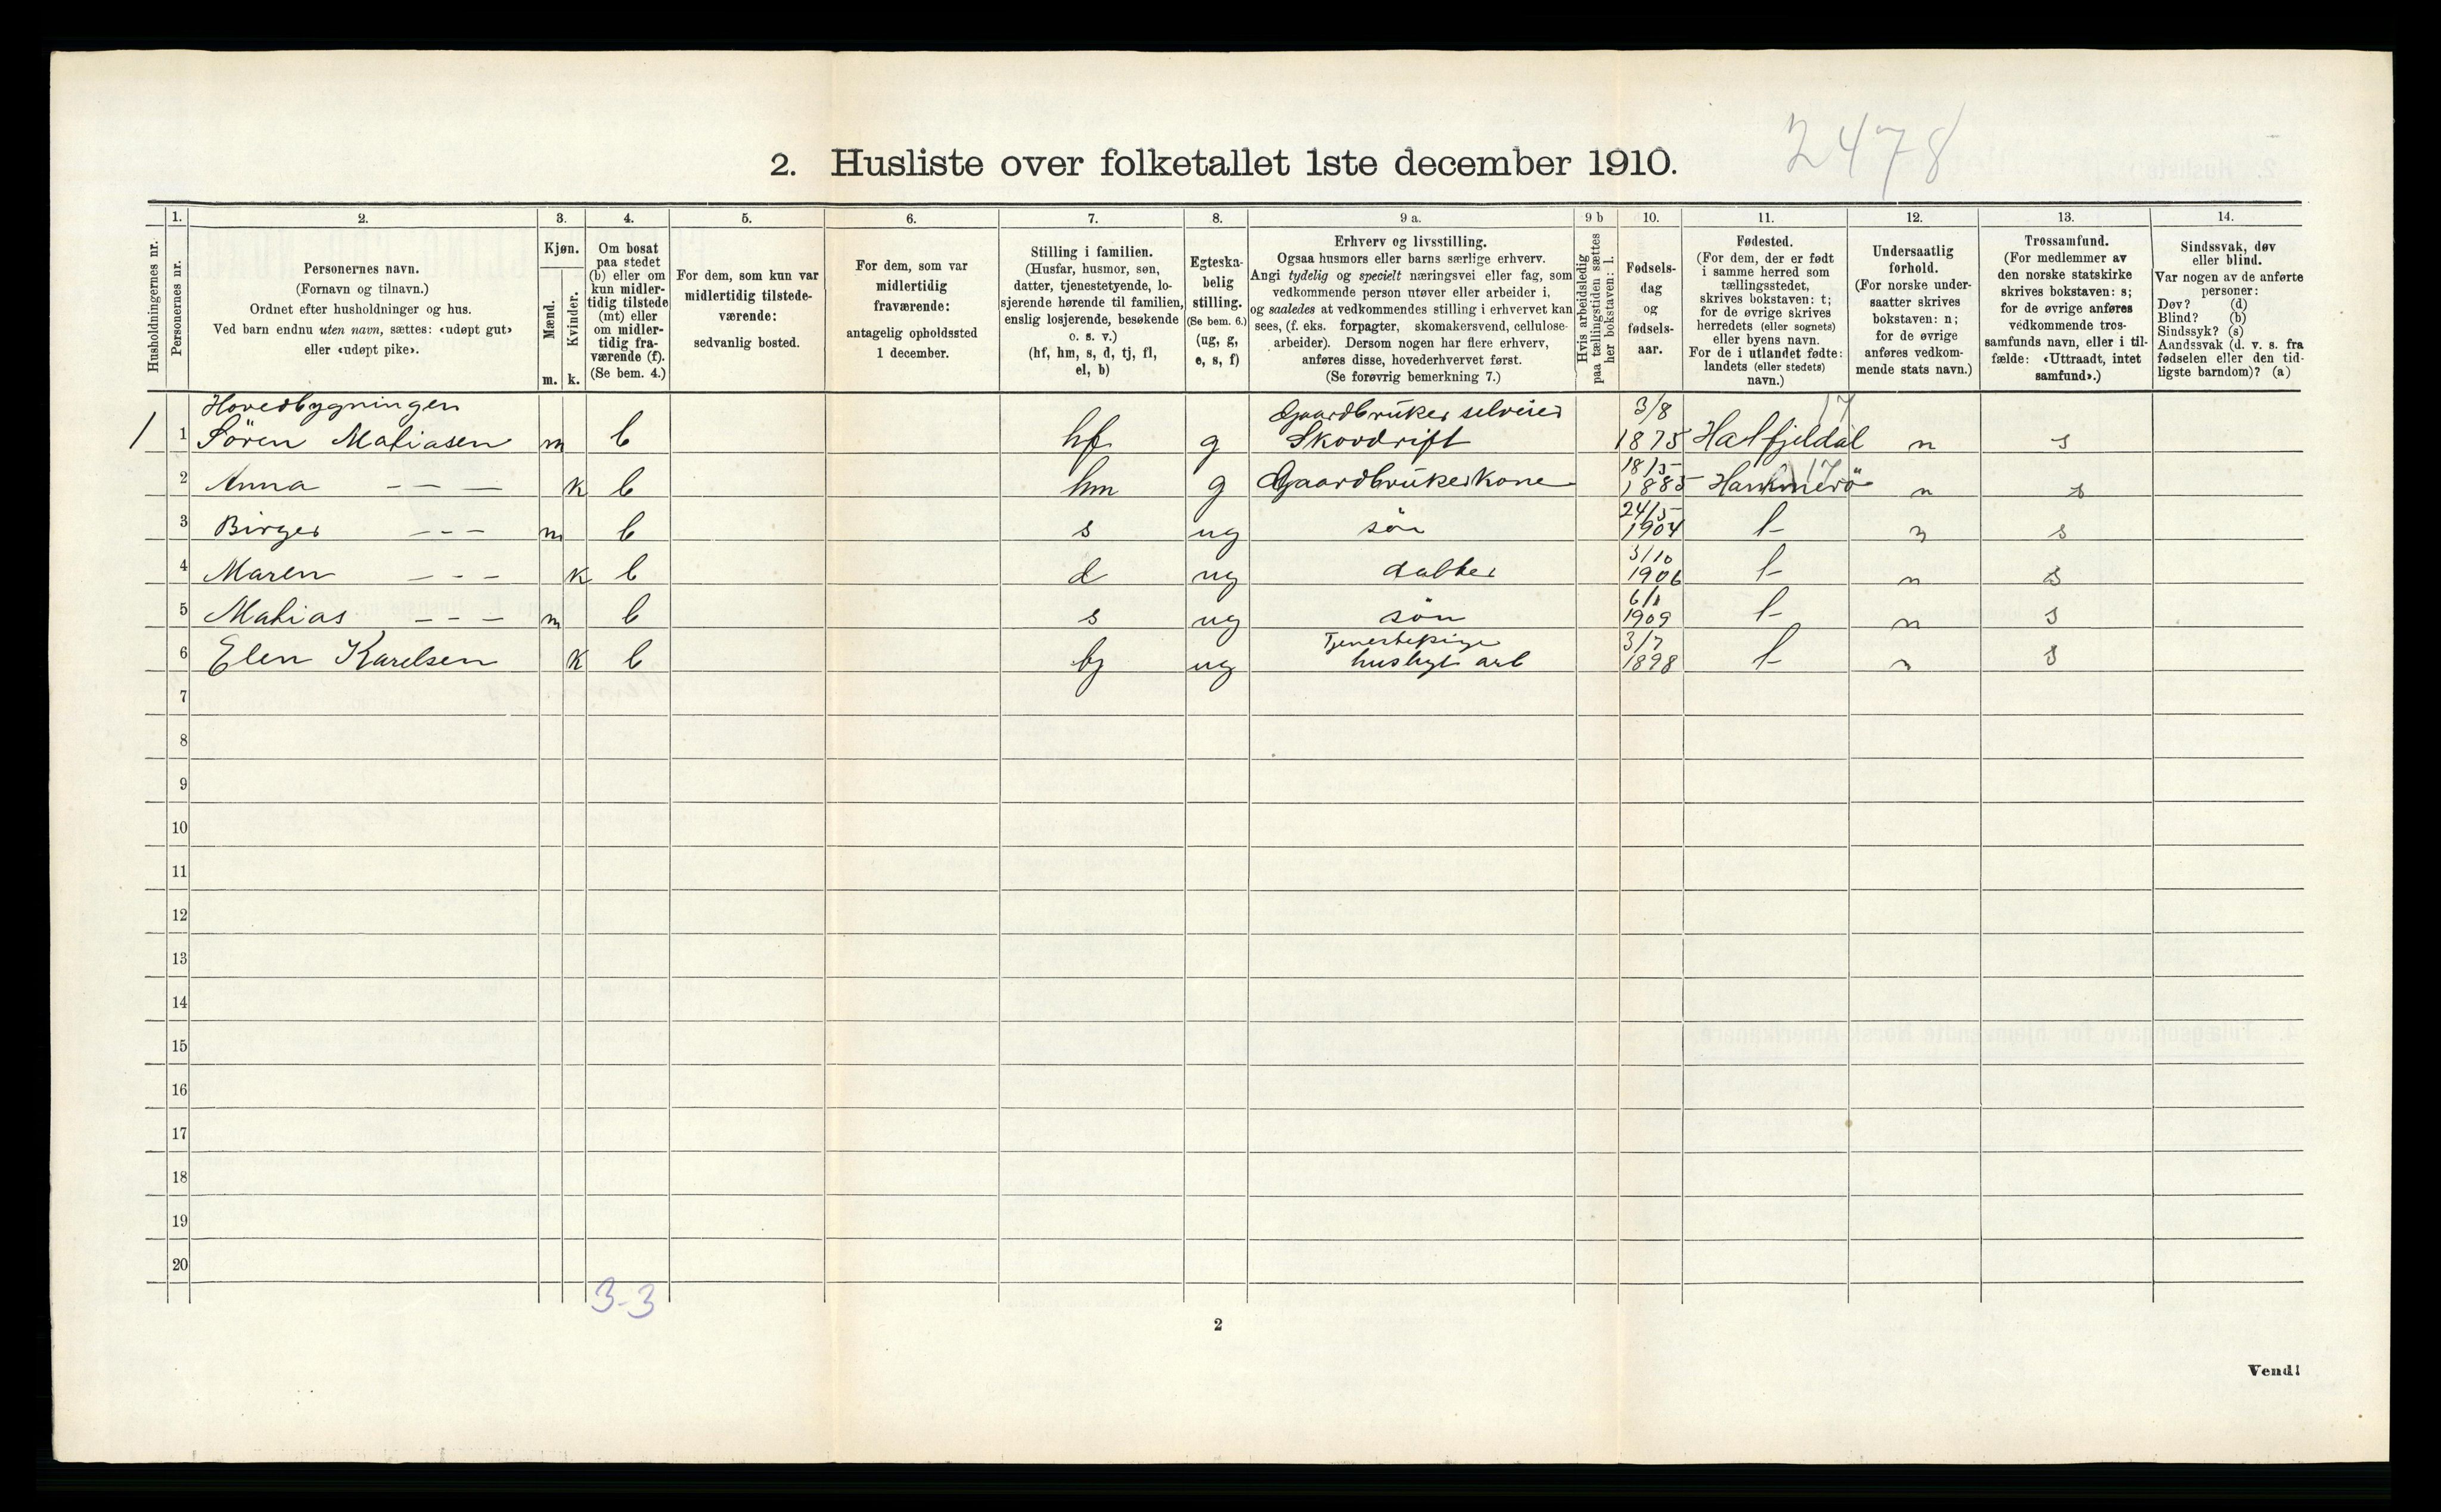 2478
2. Husliste over folketallet 1ste december 1910.
Husholdningernes nr.
1.
Personernes nr.
2.
Personernes navn.
(Fornavn og tilnavn.)
Ordnet efter husholdninger og hus.
Ved barn endnu uten navn, sættes: «udøpt gut»
eller «udøpt pike».
3.
Kjøn.
Mænd.
Kvinder.
m. k.
4.
Om bosat
paa stedet
(b) eller om
kun midler-
tidig tilstede
(mt) eller
om midler-
tidig fra-
værende (f).
(Se bem. 4.)
5.
For dem, som kun var
midlertidig tilstede-
værende:
sedvanlig bosted.
6.
For dem, som var
midlertidig
fraværende:
antagelig opholdssted
1 december.
7.
Stilling i familien.
(Husfar, husmor, søn,
datter, tjenestetyende, lo-
sjerende hørende til familien,
enslig losjerende, besøkende
o. s. v.)
(hf, hm, s, d, tj, fl,
el, b)
8.
Egteska-
belig
stilling.
(Se bem. 6.)
(ug, g,
e, s, f)
9 a.
Erhverv og livsstilling.
Ogsaa husmors eller barns særlige erhverv.
Angi tydelig og specielt næringsvei eller fag, som
vedkommende person utøver eller arbeider i,
og saaledes at vedkommendes stilling i erhvervet kan
sees, (f. eks. forpagter, skomakersvend, cellulose-
arbeider). Dersom nogen har flere erhverv,
anføres disse, hovederhvervet først.
(Se forøvrig bemerkning 7.)
9 b
Hvis arbeidsledig
paa tællingstiden sættes
her bokstaven: l.
10.
Fødsels-
dag
og
fødsels-
aar.
11.
Fødested.
(For dem, der er født
i samme herred som
tællingsstedet,
skrives bokstaven: t;
for de øvrige skrives
herredets (eller sognets)
eller byens navn.
For de i utlandet fødte:
landets (eller stedets)
navn.)
12.
Undersaatlig
forhold.
(For norske under-
saatter skrives
bokstaven: n;
for de øvrige
anføres vedkom-
mende stats navn.)
13.
Trossamfund.
(For medlemmer av
den norske statskirke
skrives bokstaven: s;
for de øvrige anføres
vedkommende tros-
samfunds navn, eller i til-
fælde: «Uttraadt, intet
samfund».)
14.
Sindssvak, døv
eller blind.
Var nogen av de anførte
personer:
Døv? (d)
Blind? (b)
Sindssyk? (s)
Aandssvak (d. v. s. fra
fødselen eller den tid-
ligste barndom)? (a)
Hovedbygningen Gaardbruker selveier 3/8 17
1 1 Sören Matiasen m b hf g Skovdrift 1875 Hatfjeldal n s
18/5 17
2 Anna - - - k b hm g Gaardbrukerkone 1885 n s
24/5
3 Birger - - - m b s ug sön 1904 t n s
3/10
4 Maren - - - k b d ug datter 1906 t n s
6/1
5 Matias - - - m b s ug sön 1909 t n s
Tjenestepige 3/7
6 Elen Karelsen k b tj ug husligt arb 1898 t n s
7
8
9
10
11
12
13
14
15
16
17
18
19
20
3-3
2
Vend!